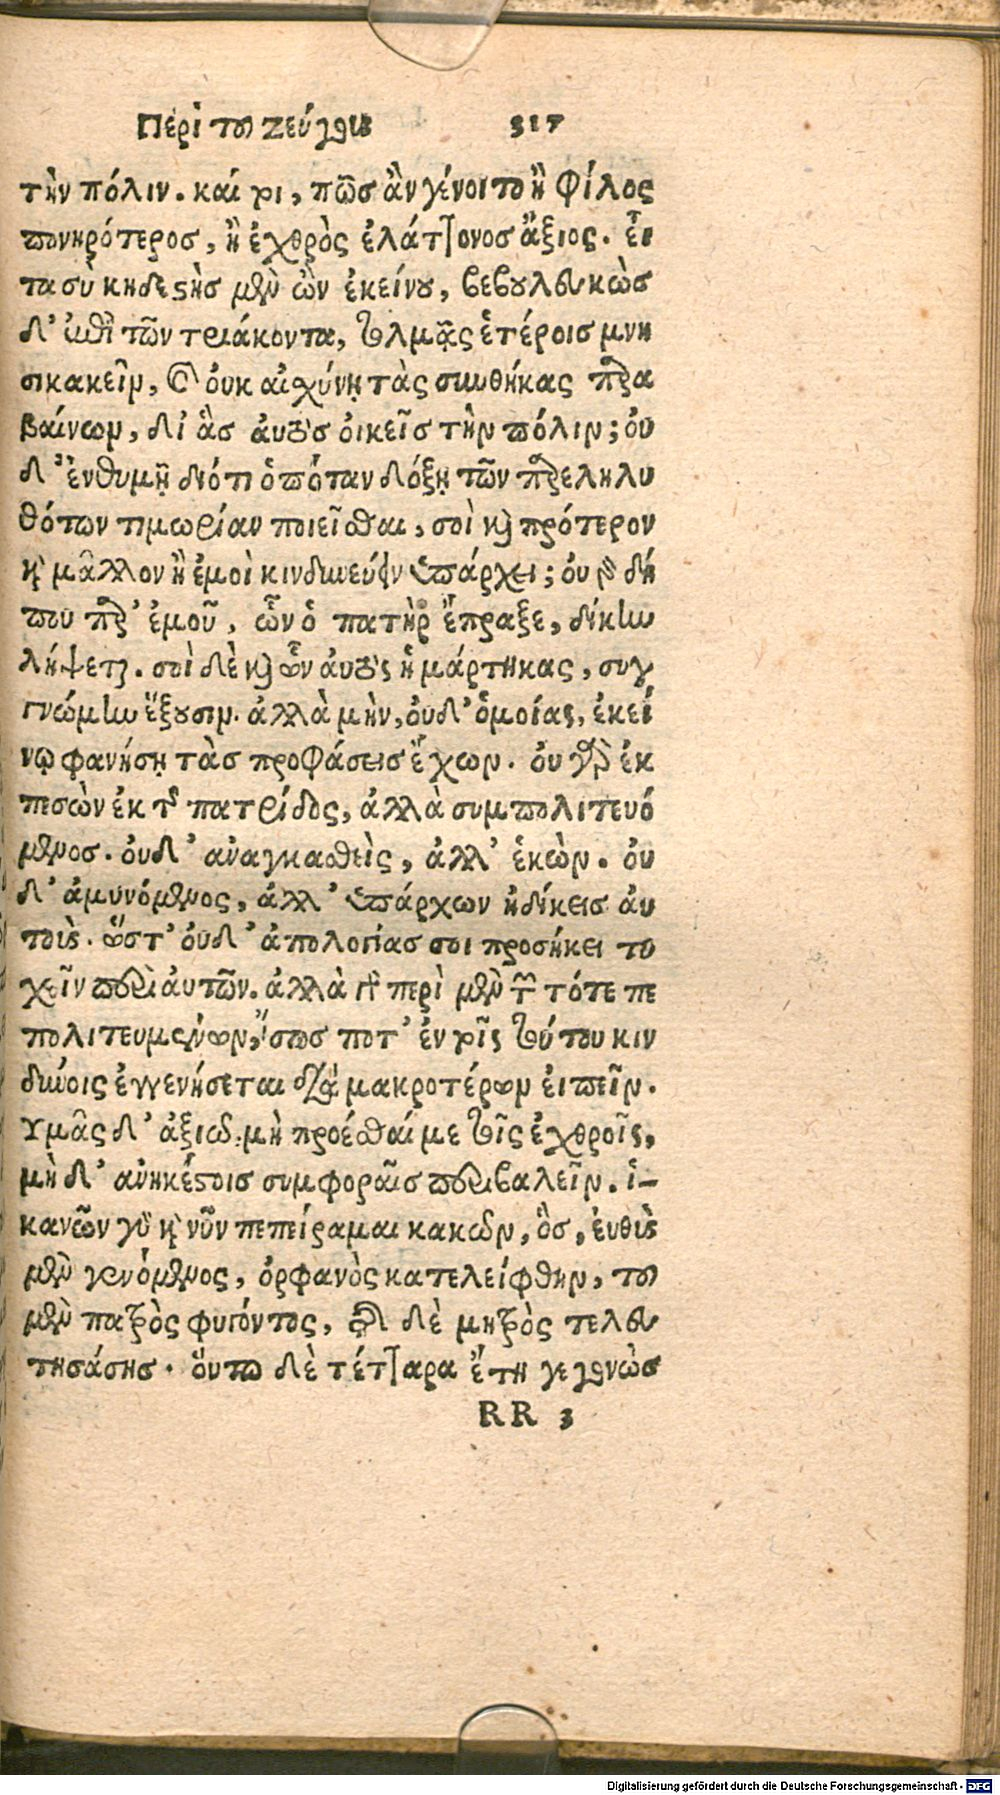 Περὶ τοῦ ζεύγους 517
τὴν πόλιν. καί τοι, πῶσ ἂν γένοιτο ἢ φίλος
πονηρότεροσ, ἢ ἐχθρὸς ἐλάττονοσ ἄξιος. εἶ
τα σὺ κηδεστὴσ μὲν ὢν ἐκείνου, βεβουλευκὼσ
δ' ἐπὶ τῶν τριάκοντα, τολμᾷς ἑτέροισ μνη
σικακεῖν, καὶ ὀυκ αἰσχύνῃ τὰς συνθήκας παρα
βαίνων, δι' ἃσ ἀυτὸς ὀικεῖσ τὴν πόλιν; ὀυ
δ' ἐνθυμῇ διότι ὁπόταν δόξῃ τῶν παρεληλυ
θότων τιμωρίαν ποιεῖσθαι, σοὶ καὶ πρότερον
καὶ μᾶλλον ἢ ἐμοὶ κινδυνεύειν ὑπάρχει; ὀυ γὰρ δή
που παρ' ἐμοῦ, ὧν ὁ πατὴρ ἔπραξε, δίκην
λήψεται. σοὶ δὲ καὶ ὧν ἀυτὸς ἡμάρτηκας, συγ
γνώμην ἕξουσιν. ἀλλὰ μὴν, ὀυδ' ὁμοίας, ἐκεί
νῳ φανήσῃ τὰσ προφάσεισ ἔχων. ὀυ γὰρ ἐκ
πεσὼν ἐκ τῆς πατρίδος, ἀλλὰ συμπολιτευό
μενοσ. ὀυδ' ἀναγκασθεὶς, ἀλλ' ἑκὼν. ὀυ
δ' ἀμυνόμενος, ἀλλ' ὑπάρχων ἠδίκεισ ἀυ
τούς. ὥστ' ὀυδ' ἀπολογίασ σοι προσήκει τυ
χεῖν παρὰ ἀυτῶν. ἀλλὰ γὰρ περὶ μὲν τῶν τότε πε
πολιτευμένων, ἴσωσ ποτ' ἐν τοῖς τούτου κιν
δύνοις ἐγγενήσεται διὰ μακροτέρων ἐιπεῖν.
Υμᾶς δ' ἀξιῶ μὴ προέσθαί με τοῖς ἐχθροῖς,
μὴ δ' ἀνηκέστοισ συμφοραῖσ περιβαλεῖν. ἱ-
κανῶν γὰρ καὶ νῦν πεπείραμαι κακῶν, ὃσ, ἐυθὺς
μὲν γενόμενος, ὀρφανὸς κατελείφθην, τοῦ
μὲν πατρὸς φυγόντος, τῆς δὲ μητρὸς τελευ
τησάσησ. ὄυπω δὲ τέτταρα ἔτη γεγονὼσ
RR 3
Digitalisierung gefördert durch die Deutsche Forschungsgemeinschaft - DFG